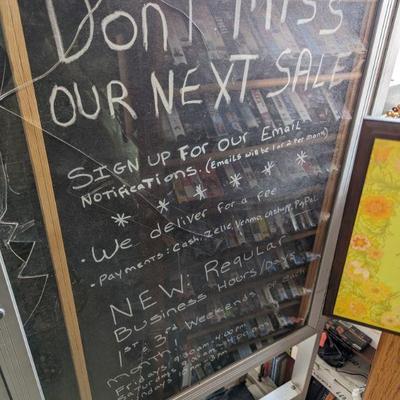 Don't Miss
OUR NEXT SALE
SIGN UP FOR OUR EMAIL
NOTIFICATIONS. (Emails will be 1 or 2 per month)
* * * * * *
• We deliver for a fee
• Payments: Cash, Zelle, Venmo, Cashapp, PayPal
NEW: Regular
Business Hours/Days
1st & 3rd Weekends of each
month!
Fridays 9:30am-4:00pm
Saturdays